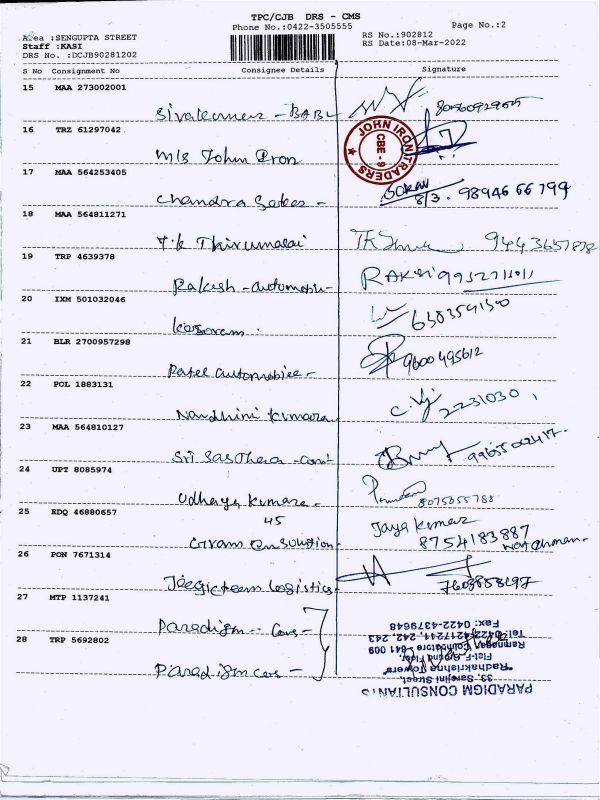 TPC/CJB DRS - CMS
Phone No.:0422-3505555
Page No.:2
Area :SENGUPTA STREET
Staff :KASI
DRS No. :DCJB90281202
RS No.:902812
RS Date:08-Mar-2022
S No Consignment No Consignee Details Signature
15 MAA 273002001
Sivakumar - BABL
16 TRZ 61297042
M/s John Iron
JOHN IRON TRADERS
CBE - 9
17 MAA 564253405
Chandra Sekar -
8/3. 98946 66 799
18 MAA 564811271
T.K Thirumalai
9443657878
19 TRP 4639378
Rakesh - automobile -
RAKESH 9952711011
20 IXM 501032046
638354150
21 BLR 2700957298
Patel automobiles -
9600495612
22 POL 1883131
Nandhini Kumaran
2231030
23 MAA 564810127
Sri Sasthera - cont
24 UPT 8085974
Udhaya Kumara -
8075655788
25 EDQ 46880657
45
Gram
Jaya Kumar
8754183887
watchman -
26 PON 7671314
Logistics -
7608858197
27 MTP 1137241
Paradigm - Cons -
28 TRP 5692802
Paradigm cons -
PARADIGM CONSULTANTS
33, Sarojini Street,
"Radhakrishna Towers"
Flat-F, Ground Floor,
Ramnagar, Coimbatore 641 009
Tel: 0422-4217211, 242, 243
Fax: 0422-4379648